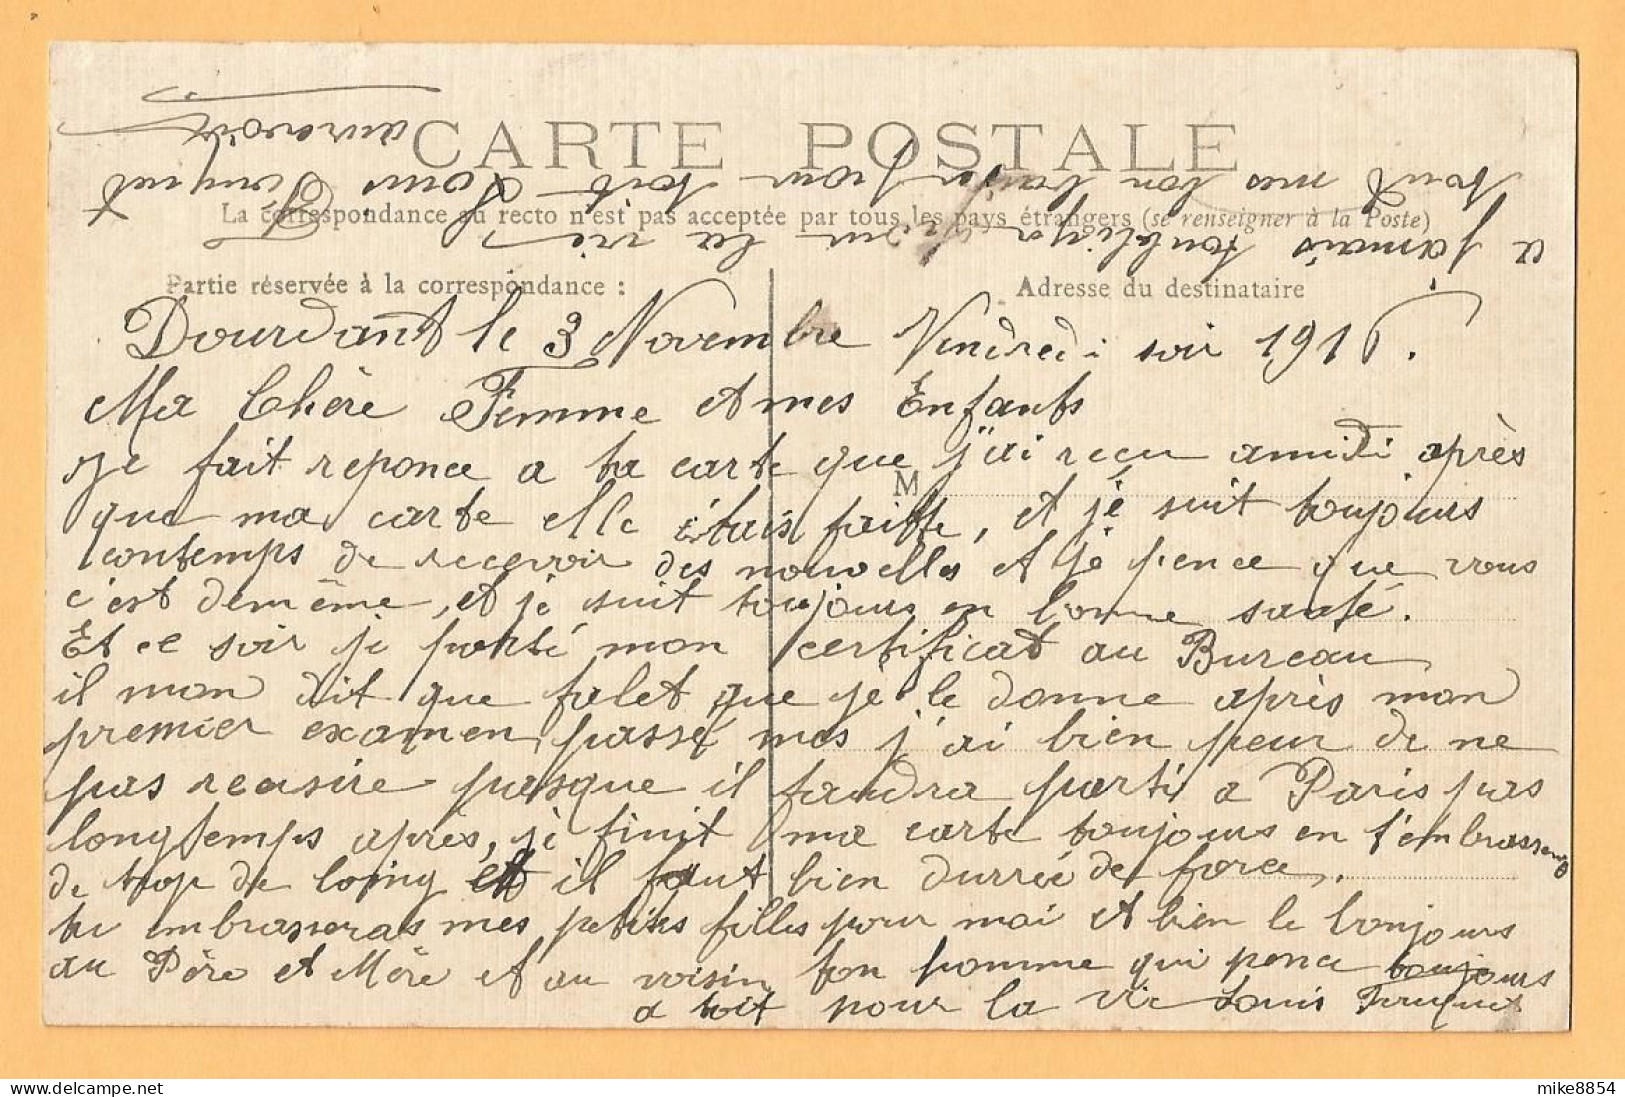 CARTE POSTALE
La correspondance au recto n'est pas acceptée par tous les pays étrangers (se renseigner à la Poste)
Partie réservée à la correspondance :
Adresse du destinataire
M
Dourdant le 3 Novembre Vendredi soir 1916.
Ma Chère Femme et mes Enfants
Je fait reponce a ta carte que j'ai reçu amidi après
que ma carte elle étais faitte, et je suit toujours
contemps de recevoir des nouvelles et je pence que vous
c'est demême, et je suit toujours en bonne santé.
Et ce soir je porté mon certificat au Bureau
il mon dit que falet que je le donne après mon
premier examen passé mes j'ai bien peur de ne
pas reusire pasque il faudra parti a Paris pas
longtemps après, je finit ma carte toujours en t'embrassens
de trop de loing et il faut bien durrée de force.
tu embrasseras mes petites filles pour moi et bien le bonjours
au Père et Mère et au voisin ton homme qui pence toujours
a toit pour la vie Louis Fruquet
a jamais toublier pour la vie
tout mes bon baiser pour toit Louis
aurevoir
mike8854